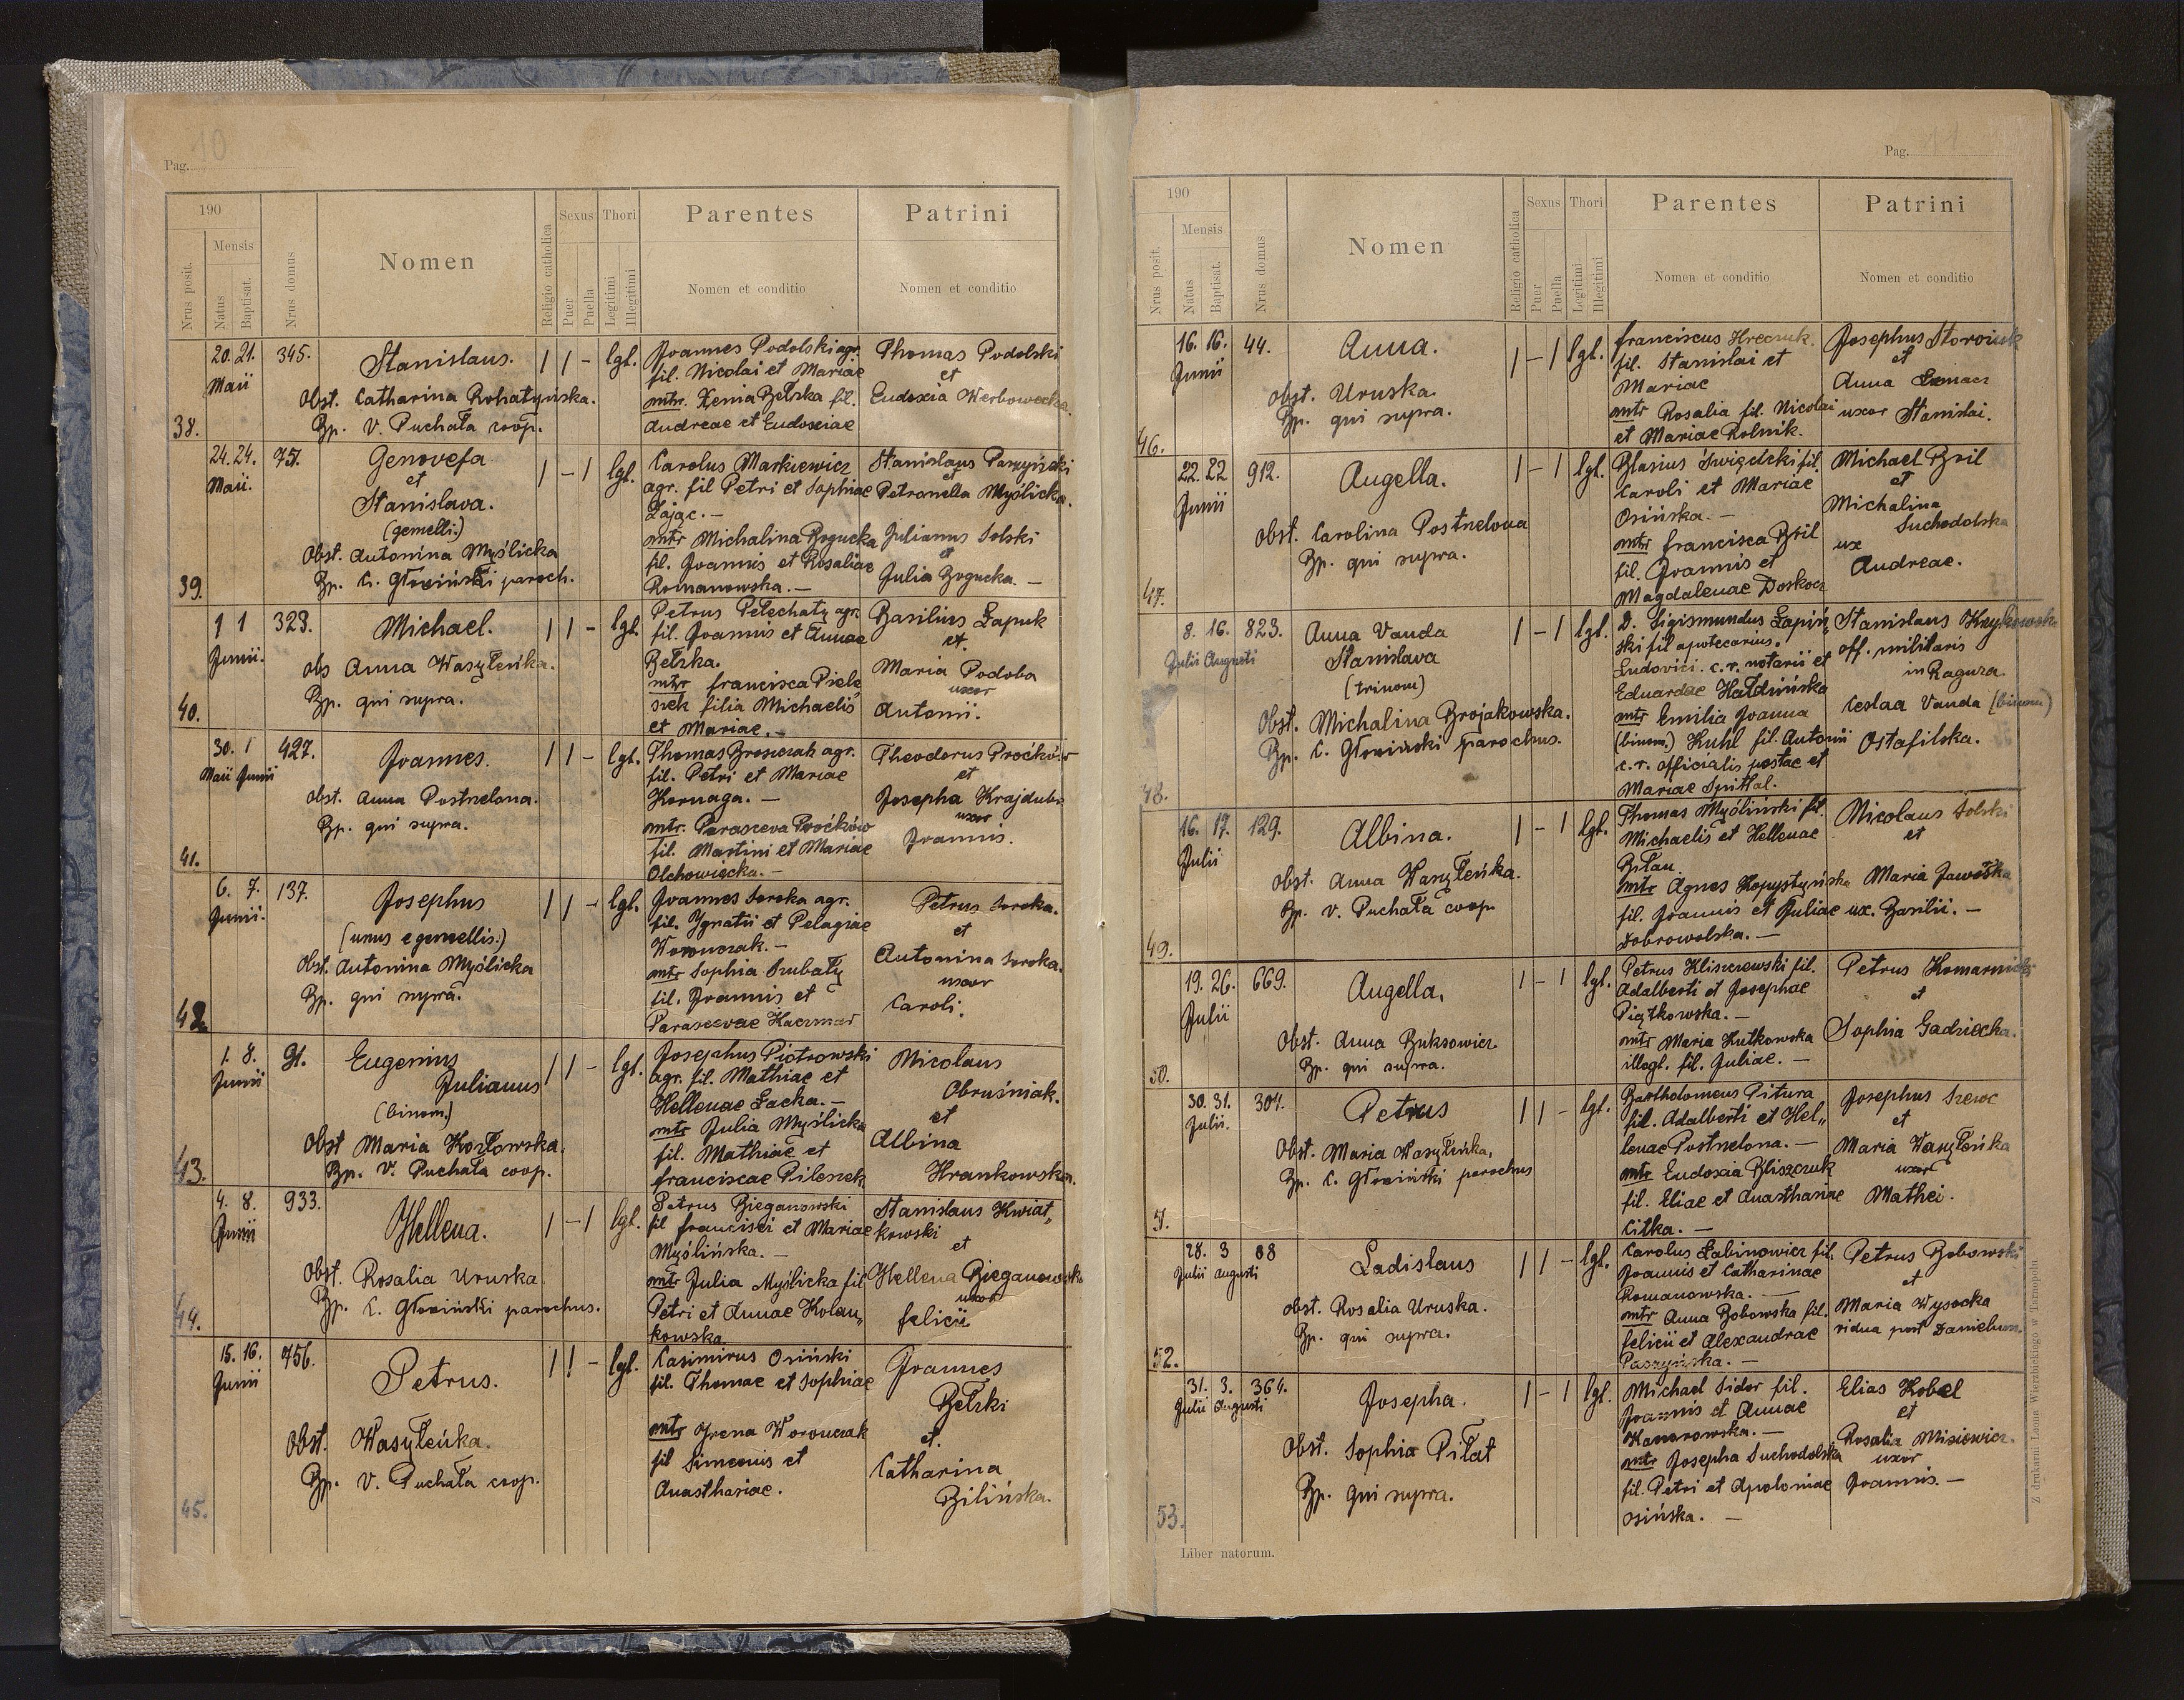 Pag. 10
190
Nrus posit.
Mensis
Natus
Baptisat.
Nrus domus
Nomen
Religio catholica
Sexus
Puer
Puella
Thori
Legitimi
Illegitimi
Parentes
Nomen et conditio
Patrini
Nomen et conditio
38.
20. 21.
Maii
345.
Stanislaus.
Obst. Catharina Rohatyńska.
Bp. V. Puchała coop.
1 1 - lgl.
Joannes Podolski agr.
fil. Nicolai et Mariae
mtr. Xenia Bełzka fil.
Andreae et Eudoxiae
Thomas Podolski
et
Eudoxia Werbowecka.
39.
24. 24.
Maii.
757.
Genovefa
et
Stanislava.
(gemelli.)
Obst. Antonina Myślicka
Bp. C. Głoziński paroch.
1 - 1 lgl.
Carolus Markiewicz
agr. fil Petri et Sophiae
Zając. -
mtr Michalina Bogucka
fil. Joannis et Rosaliae
Romanowska. -
Stanislaus Paszyński
et
Petronella Myślicka.
Julianus Solski
et
Julia Bogucka. -
40.
1 1
Junii.
323.
Michael.
obs Anna Wasyłeńka.
Bp. qui supra.
1 1 - lgl.
Petrus Pełechaty agr.
fil. Joannis et Annae
Bełzka.
mtr francisca Piele
szek filia Michaelis
et Mariae. -
Basilius Łapuk
et.
Maria Podoba
uxor
Antonii.
41.
30. 1
Maii Junii
427.
Joannes.
Obst. Anna Postrelona.
Bp. qui supra.
1 1 - lgl.
Thomas Broszczak agr.
fil. Petri et Mariae
Kornaga. -
mtr. Parasceva Proćków
fil. Martini et Mariae
Olchowiecka. -
Theodorus Proćków
et
Josepha Krajduba
uxor
Joannis.
42.
6. 7.
Junii.
137.
Josephus
(unus e gemellis.)
Obst. Antonina Myślicka
Bp. qui supra.
1 1 - lgl.
Joannes Soroka agr.
fil. Ignatii et Pelagiae
Woronczak. -
mtr Sophia Zrubaty
fil. Joannis et
Parascevae Kaczmar
Petrus Soroka.
et
Antonina Soroka.
uxor
Caroli.
43.
1. 8.
Junii
91.
Eugenius
Julianus
(binom.)
Obst Maria Kozłowska.
Bp. V. Puchała coop.
1 1 - lgl.
Josephus Piotrowski
agr. fil. Mathiae et
Hellenae Łacka. -
mtr Julia Myślicka
fil. Mathiae et
franciscae Pileszek
Nicolaus
Obruśniak.
et
Albina
Hrankowska.
44.
4. 8.
Junii
933.
Hellena.
Obst. Rosalia Uruska
Bp. C. Głoziński parochus.
1 - 1 lgl.
Petrus Bieganowski
fil francisci et Mariae
Myślińska. -
mtr Julia Myślicka fil
Petri et Annae Kolan„
kowska
Stanislaus Kwiat„
kowski
et
Hellena Bieganowska
uxor
felicii
45.
15. 16.
Junii
756.
Petrus.
Obst. Wasyłeńka.
Bp. V. Puchała coop.
1 1 - lgl.
Casimirus Osiński
fil. Thomae et Sophiae
mtr Irena Woronczak
fil Simeonis et
Anasthasiae.
Joannes
Bełzki
et.
Catharina
Bilińska.
Pag. 11
190
Nrus posit.
Mensis
Natus
Baptisat.
Nrus domus
Nomen
Religio catholica
Sexus
Puer
Puella
Thori
Legitimi
Illegitimi
Parentes
Nomen et conditio
Patrini
Nomen et conditio
46.
16. 16.
Junii
44.
Anna.
obst. Uruska.
Bp. qui supra.
1 - 1 lgl.
franciscus Hreczuk.
fil. Stanislai et
Mariae
mtr Rosalia fil. Nicolai
et Mariae Rolnik.
Josephus Storożuk
et
Anna
uxor Stanislai.
47.
22. 22
Junii
912.
Angella.
Obst. Carolina Postrelona
Bp. qui supra.
1 - 1 lgl.
Blasius Świądelski fil.
Caroli et Mariae
Osińska. -
mtr francisca Bril
fil. Joannis et
Magdalenae Doskocz
Michael Bril
et
Michalina
Suchodolska
ux
Andreae.
48.
8. 16.
Julii Augusti
823.
Anna Vanda
Stanislava
(trinom)
Obst. Michalina Brojakowska.
Bp. C. Głoziński parochus.
1 - 1 lgl.
D. Sigismundus Łapiń„
ski fil apotecarius.
Ludovici. c. r. notarii et
Eduardae Hałdzińska
mtr Emilia Joanna
(binom.) Kuhl fil. Antonii
c. r. officialis postae et
Mariae Spittal.
Stanislaus Krzykowski
off. militaris
in Raguza.
Ceslaa Vanda (binom)
Ostafilska.
49.
16. 17.
Julii
129.
Albina.
Obst. Anna Wasyłeńka.
Bp. V. Puchała coop.
1 - 1 lgl.
Thomas Myśliński fil.
Michaelis et Hellenae
Biłan.
mtr Agnes Kopystyńska
fil. Joannis et Juliae
Dobrowolska. -
Nicolaus Solski
et
Maria Jaworska
ux. Basilii. -
50.
19. 26.
Julii
669.
Angella.
Obst. Anna Buksowicz
Bp. qui supra.
1 - 1 lgl.
Petrus Kliszczewski fil.
Adalberti et Josephae
Piątkowska. -
mtr Maria Kutkowska
illegl. fil. Juliae. -
Petrus Komarnicki
et
Sophia Gadziecka.
51.
30. 31.
Julii.
307.
Petrus
Obst. Maria Wasyłeńka,
Bp. C. Głoziński parochus
1 1 - lgl.
Bartholomeus Pitura
fil. Adalberti et Hel„
lenae Postrelona. -
mtr Eudoxia Bliszczuk
fil. Eliae et Anasthasiae
Citka. -
Josephus Szewc
et
Maria Wasyłeńka
uxor
Mathei.
52.
28. 3
Julii augusti
88
Ladislaus
obst. Rosalia Uruska.
Bp. qui supra.
1 1 - lgl.
Carolus Łabinowicz fil.
Joannis et Catharinae
Romanowska. -
mtr Anna Bobowska fil.
felicii et Alexandrae
Paszyńska. -
Petrus Bobowski
et
Maria Wysocka
vidua post Danielum.
53.
31. 3.
Julii Augusti
364.
Josepha.
Obst. Sophia Piłat
Bp. qui supra.
1 - 1 lgl.
Michael Sidor fil.
Joannis et Annae
mtr Josepha Suchodolska
fil. Petri et Apoloniae
Osińska. -
Elias Kobel
et
Rosalia Misiewicz.
uxor
Joannis. -
Liber natorum.
Z drukarni Leona Wierzbickiego w Tarnopolu